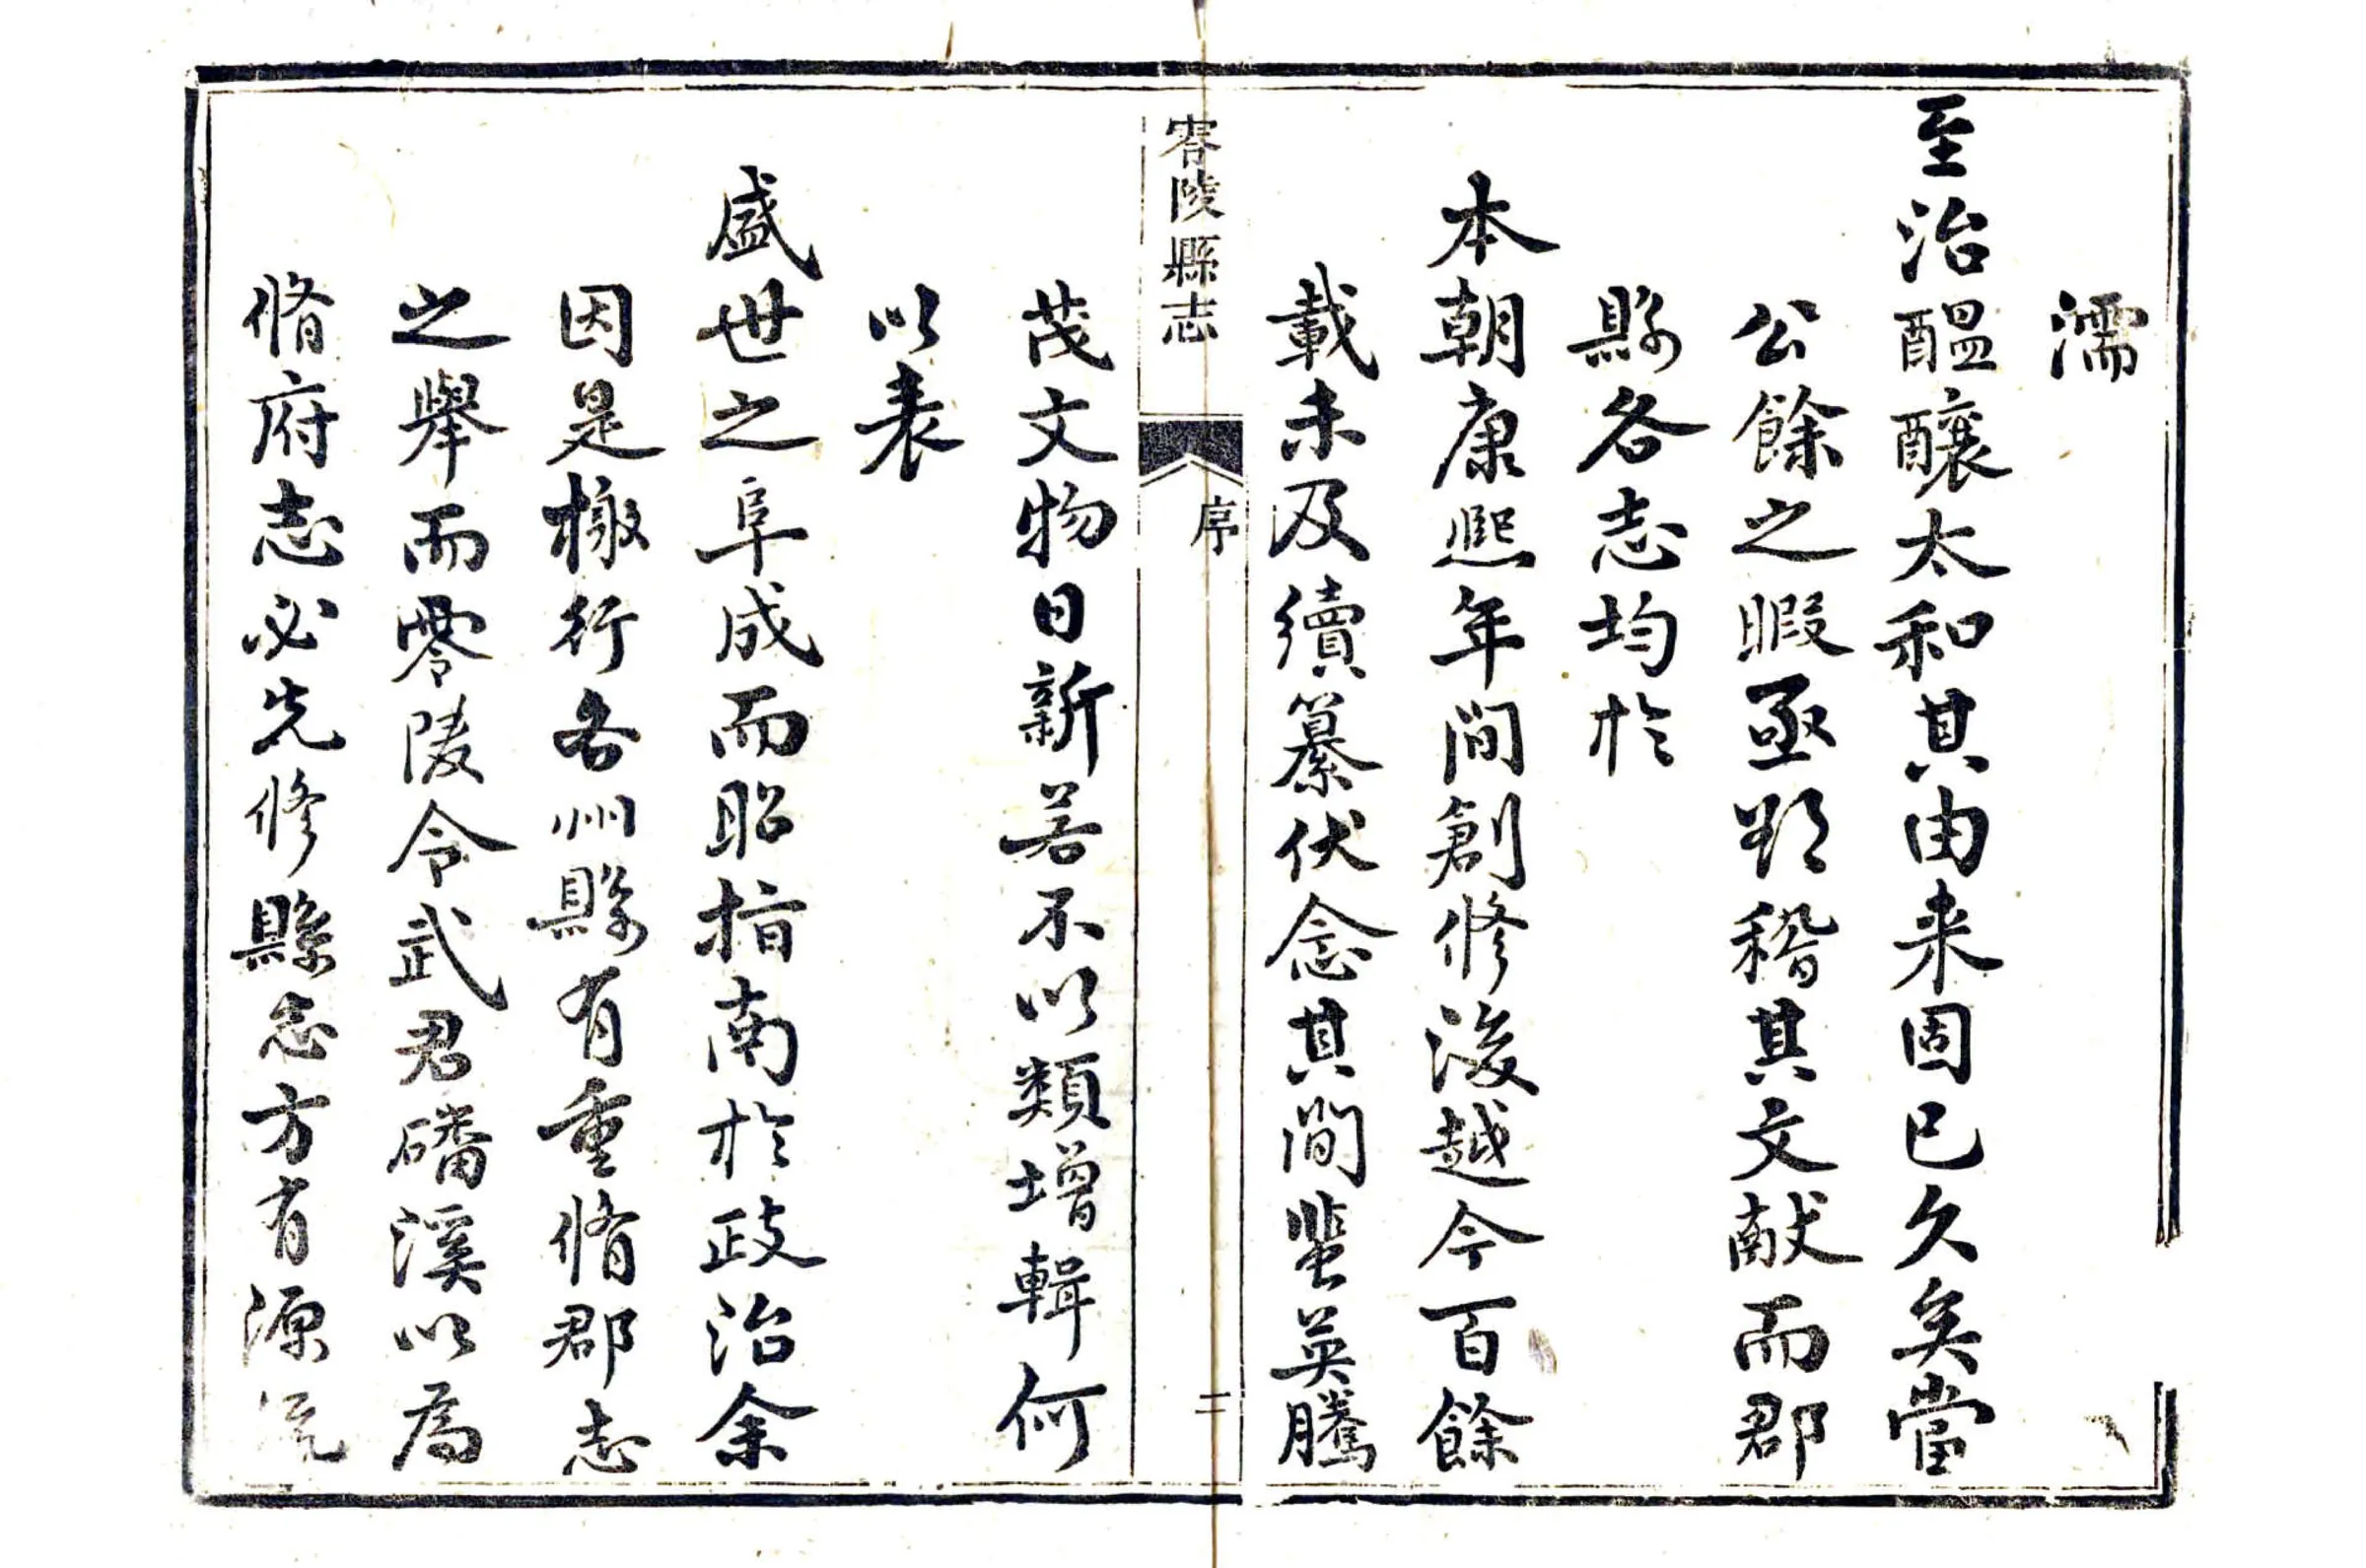 濡
至治醞釀太和其由来固已久矣當
公餘之暇亟稽其文献而郡
縣各志均於
本朝康熙年間創修後越今百餘
載未及續纂伏念其間蜚英騰
零陵縣志
序
二
茂文物日新若不以類增輯何
以表
盛世之阜成而昭指南於政治余
因是檄行各州縣有重脩郡志
之舉而零陵令武君磻溪以為
脩府志必先修縣志方有源流